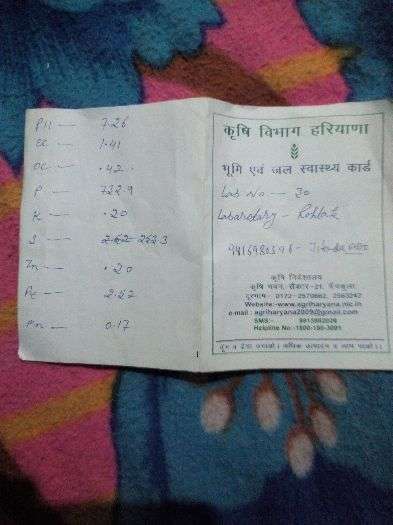 PH — 7.26
EC — 1.41
OC — .42
P — 722.9
K — .20
S — 262.3
Zn — .20
Fe — 2.52
Mn — 0.17
कृषि विभाग हरियाणा
भूमि एवं जल स्वास्थ्य कार्ड
Lab No — 30
Labarotary — Rohtak
कृषि निदेशालय
कृषि भवन, सैक्टर-21, पंचकूला
दूरभाष - 0172-2570662, 2563242
Website:-www.agriharyana.nic.in
e-mail : agriharyana2009@gmail.com
SMS:- 9915862026
Helpline No:-1800-180-3001